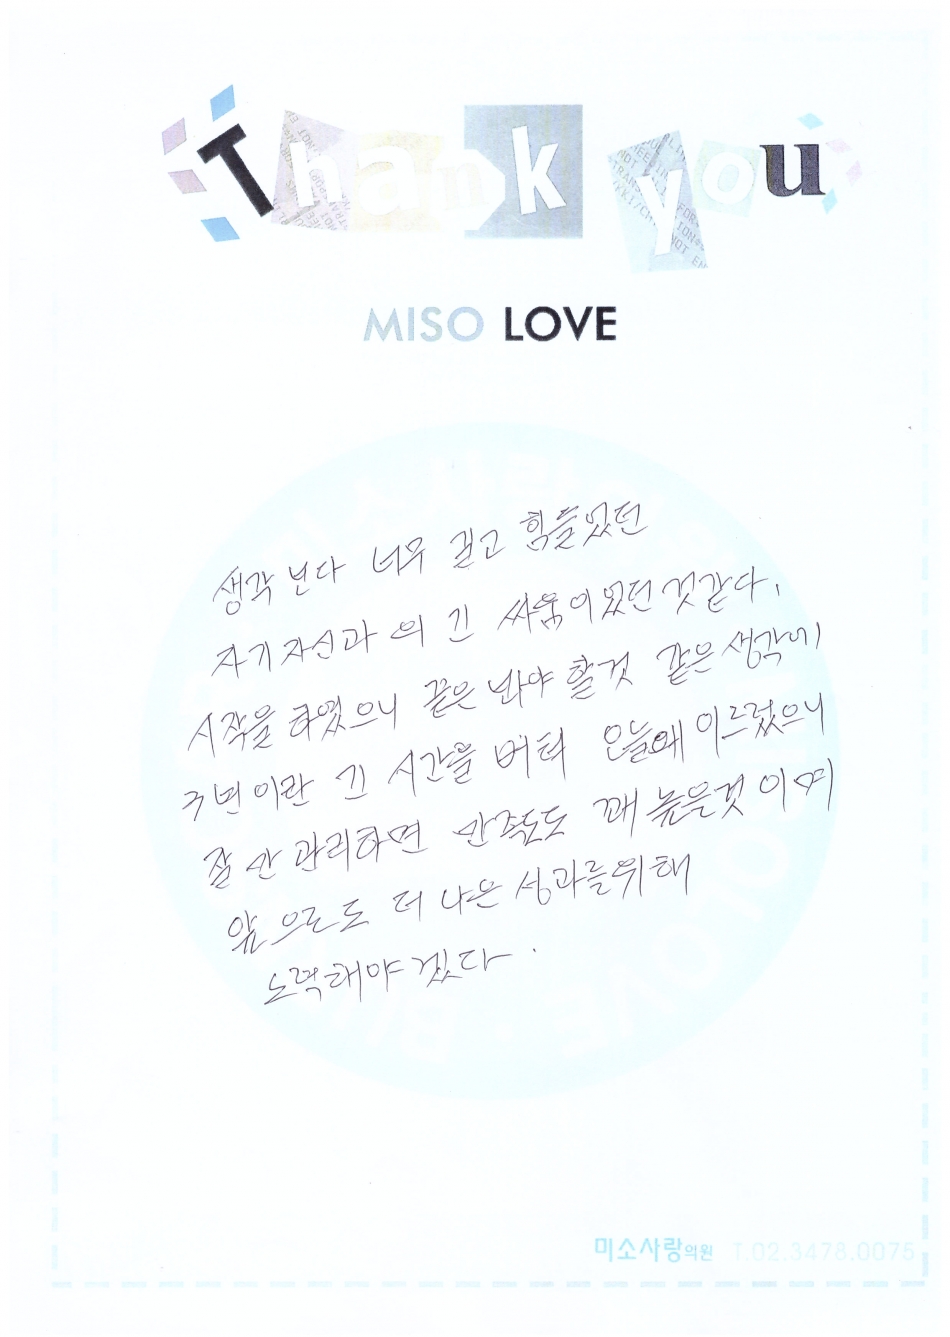 Thank you
MISO LOVE
생각 보다 너무 길고 힘들었던
자기 자신과의 긴 싸움이었던 것 같다.
시작을 하였으니 끝은 봐야 할 것 같은 생각에
3년이란 긴 시간을 버텨 오늘에 이르렀으니
잘 만 관리하면 만족도도 꽤 높을것 이며
앞으로도 더 나은 성과를 위해
노력해야 겠다.
미소사랑의원 T.02.3478.0075